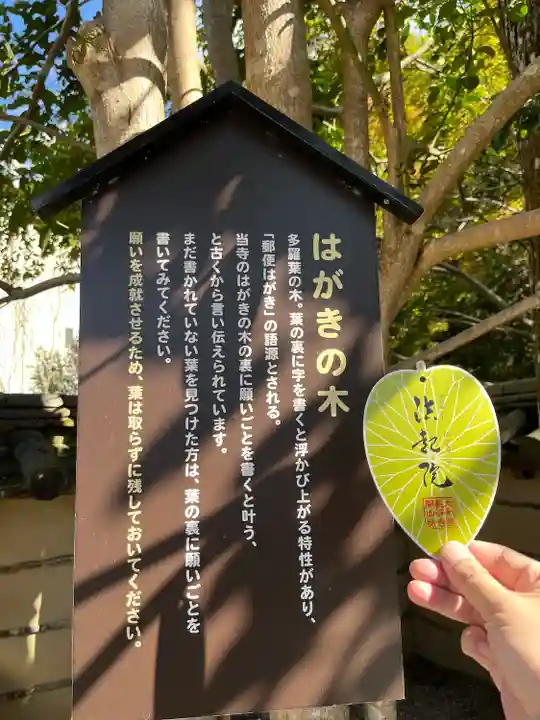 はがきの木
多羅葉の木。葉の裏に字を書くと浮かび上がる特性があり、
「郵便はがき」の語源とされる。
当寺のはがきの木の裏に願いごとを書くと叶う、
と古くから言い伝えられています。
まだ書かれていない葉を見つけた方は、葉の裏に願いごとを
書いてみてください。
願いを成就させるため、葉は取らずに残しておいてください。
法起院